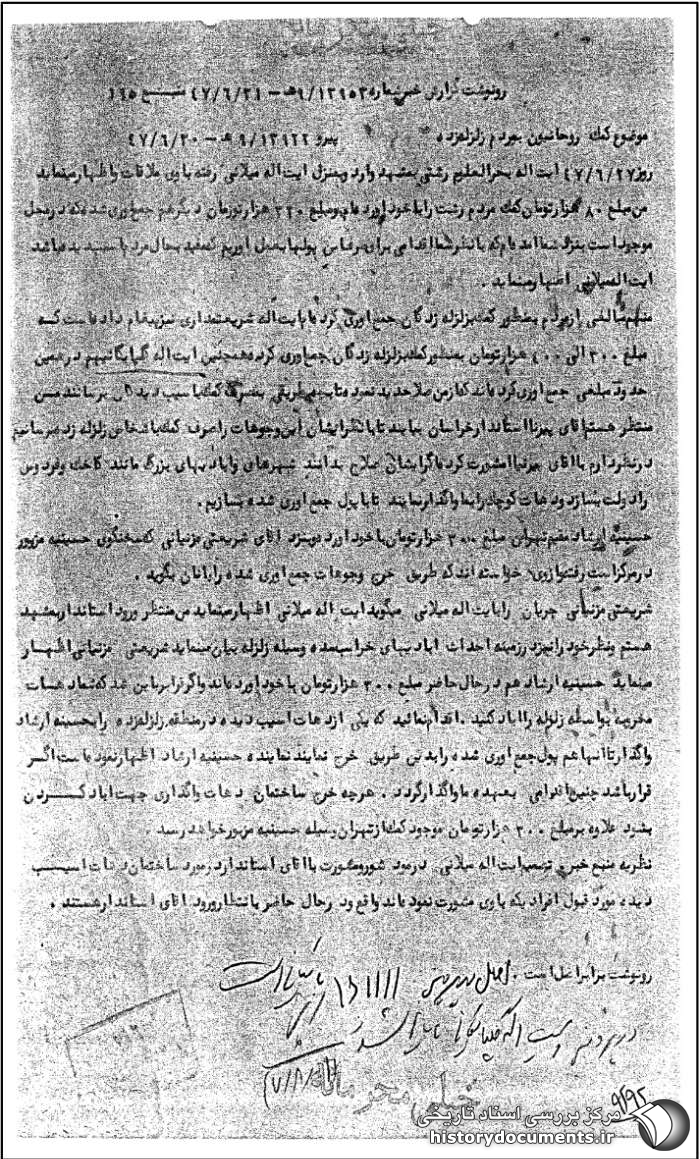 خیلی محرمانه
رونوشت گزارش خبر شماره ۹/۱۲۹۵۳هـ – ۴۷/۶/۳۱ منبع ۱۹۵
موضوع کمک روحانیون بمردم زلزله‌زده پیرو ۹/۱۲۹۲۲ هـ – ۴۷/۶/۳۰
روز ۴۷/۶/۲۷ آیت اله بحرالعلوم رشتی بمشهد وارد و بمنزل آیت اله میلانی رفته با وی ملاقات و اظهار مینماید
من مبلغ ۸۰ هزار تومان کمک مردم رشت را با خود آورده‌ام و مبلغ ۲۲۰ هزار تومان دیگر هم جمع‌آوری شده که در محل
موجود است بمنزل شما آمده‌ام که با نظر شما اقدامی برای مصرف این پولها بعمل آوریم که مفید بحال مردم آسیب دیده باشد
آیت اله میلانی اظهار مینماید .
منهم مبالغی از مردم بمنظور کمک بزلزله زدگان جمع‌آوری کرده‌ام آیت اله شریعتمداری نیز پیغام داده است که
مبلغ ۳۰۰ الی ۴۰۰ هزار تومان بمنظور کمک بزلزله زدگان جمع‌آوری کرده همچنین آیت اله گلپایگانی هم در همین
حدود مبلغی جمع آوری کرده‌اند که از من صلاحدید نموده تا بچه طریقی بمصرف کمک بآسیب دیدگان برسانند من
منتظر هستم آقای پیرنیا استاندار خراسان بیایند تا با نظر ایشان این وجوهات را صرف کمک باشخاص زلزله زده برسانیم
در نظر دارم با آقای پیرنیا مشورت کرده اگر ایشان صلاح بدانند شهرهای و آبادیهای بزرگ مانند کاخک و فردوس
را دولت بسازد و دهات کوچک را بما واگذار نمایند تا با پول جمع آوری شده بسازیم .
حسینیه ارشاد مقیم تهران مبلغ ۳۰۰ هزار تومان با خود آورده و نزد آقای شریعتی مزینانی که سخنگوی حسینیه مزبور
در مرکز است رفته و از وی خواسته اند که طریق خرج وجوهات جمع آوری شده را بآنان بگوید .
شریعتی مزینانی جریان را بآیت اله میلانی میگوید آیت اله میلانی اظهار مینماید من منتظر ورود استاندار بمشهد
هستم و نظر خود را نیز در زمینه احداث آبادیهای خراب شده وسیله زلزله بیان مینماید شریعتی مزینانی اظهار
مینماید حسینیه ارشاد هم در حال حاضر مبلغ ۳۰۰ هزار تومان با خود آورده‌اند و اگر قرار بر این شد که شما دهات
مخروبه بواسطه زلزله را آباد کنید . اقدام نمائید که یکی از دهات آسیب دیده در منطقه زلزله‌زده را بحسینیه ارشاد
واگذار تا آنها هم پول جمع آوری شده را بدین طریق خرج نمایند نماینده حسینیه ارشاد اظهار نموده است اگر
قرار باشد چنین اقدامی بعهده ما واگذار گردد . هرچه خرج ساختمان دهات واگذاری جهت آباد کردن
بشود علاوه بر مبلغ ۳۰۰ هزار تومان موجود کمک از تهران وسیله حسینیه مزبور خواهد رسید .
نظریه منبع خبر، تصمیم آیت اله میلانی در مورد شور و مشورت با آقای استاندار در مورد ساختمان دهات آسیب
دیده مورد قبول افرادیکه با وی مشورت نموده‌اند واقع و در حال حاضر بانتظار ورود آقای استاندار هستند .
رونوشت برابر اصل است .
خیلی محرمانه
۹/۹۲
مرکز بررسی اسناد تاریخی
historydocuments.ir